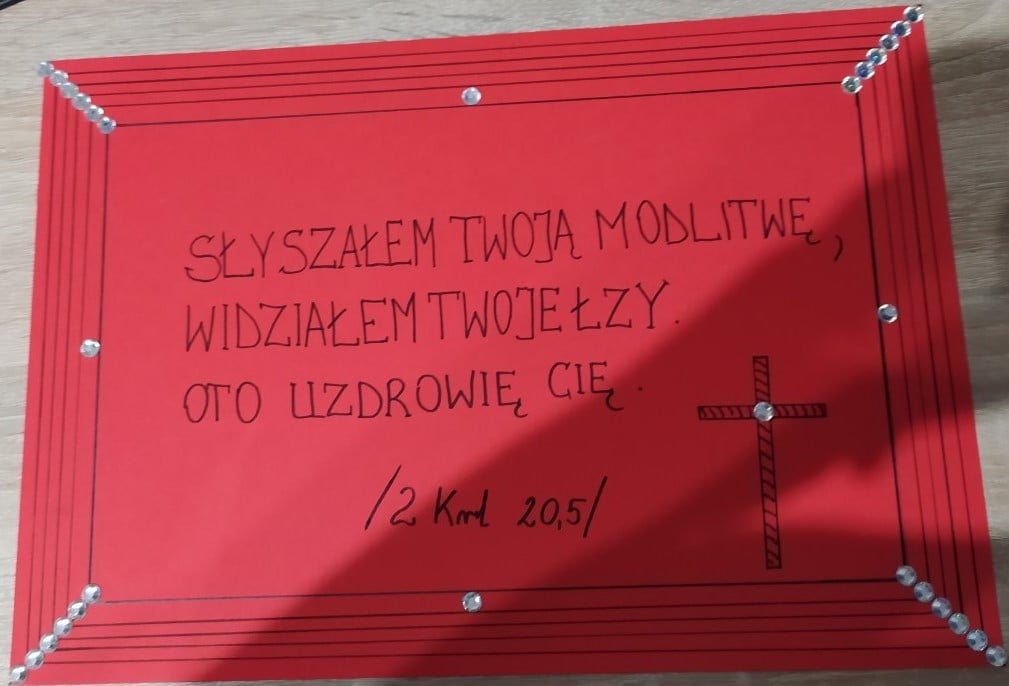 SŁYSZAŁEM TWOJĄ MODLITWĘ,
WIDZIAŁEM TWOJE ŁZY.
OTO UZDROWIĘ CIĘ.
/2 Krl 20,5/